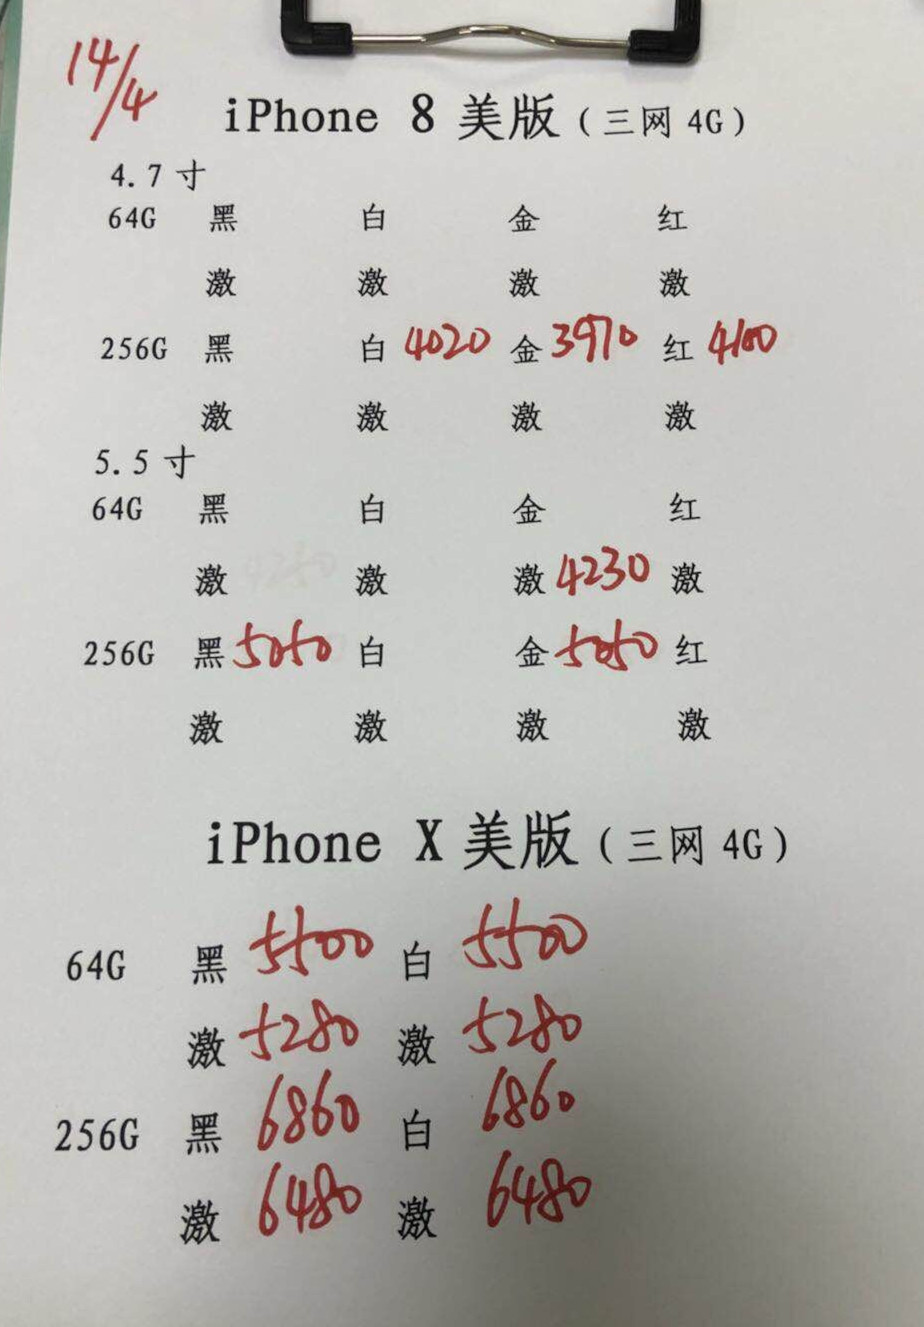 14/4
iPhone 8 美版 (三网 4G)
4.7 寸
64G 黑 白 金 红
激 激 激 激
256G 黑 白 4020 金 3970 红 4100
激 激 激 激
5.5 寸
64G 黑 白 金 红
激 激 激 4230 激
256G 黑 5050 白 金 5050 红
激 激 激 激
iPhone X 美版 (三网 4G)
64G 黑 5500 白 5500
激 5280 激 5280
256G 黑 6860 白 6860
激 6480 激 6480